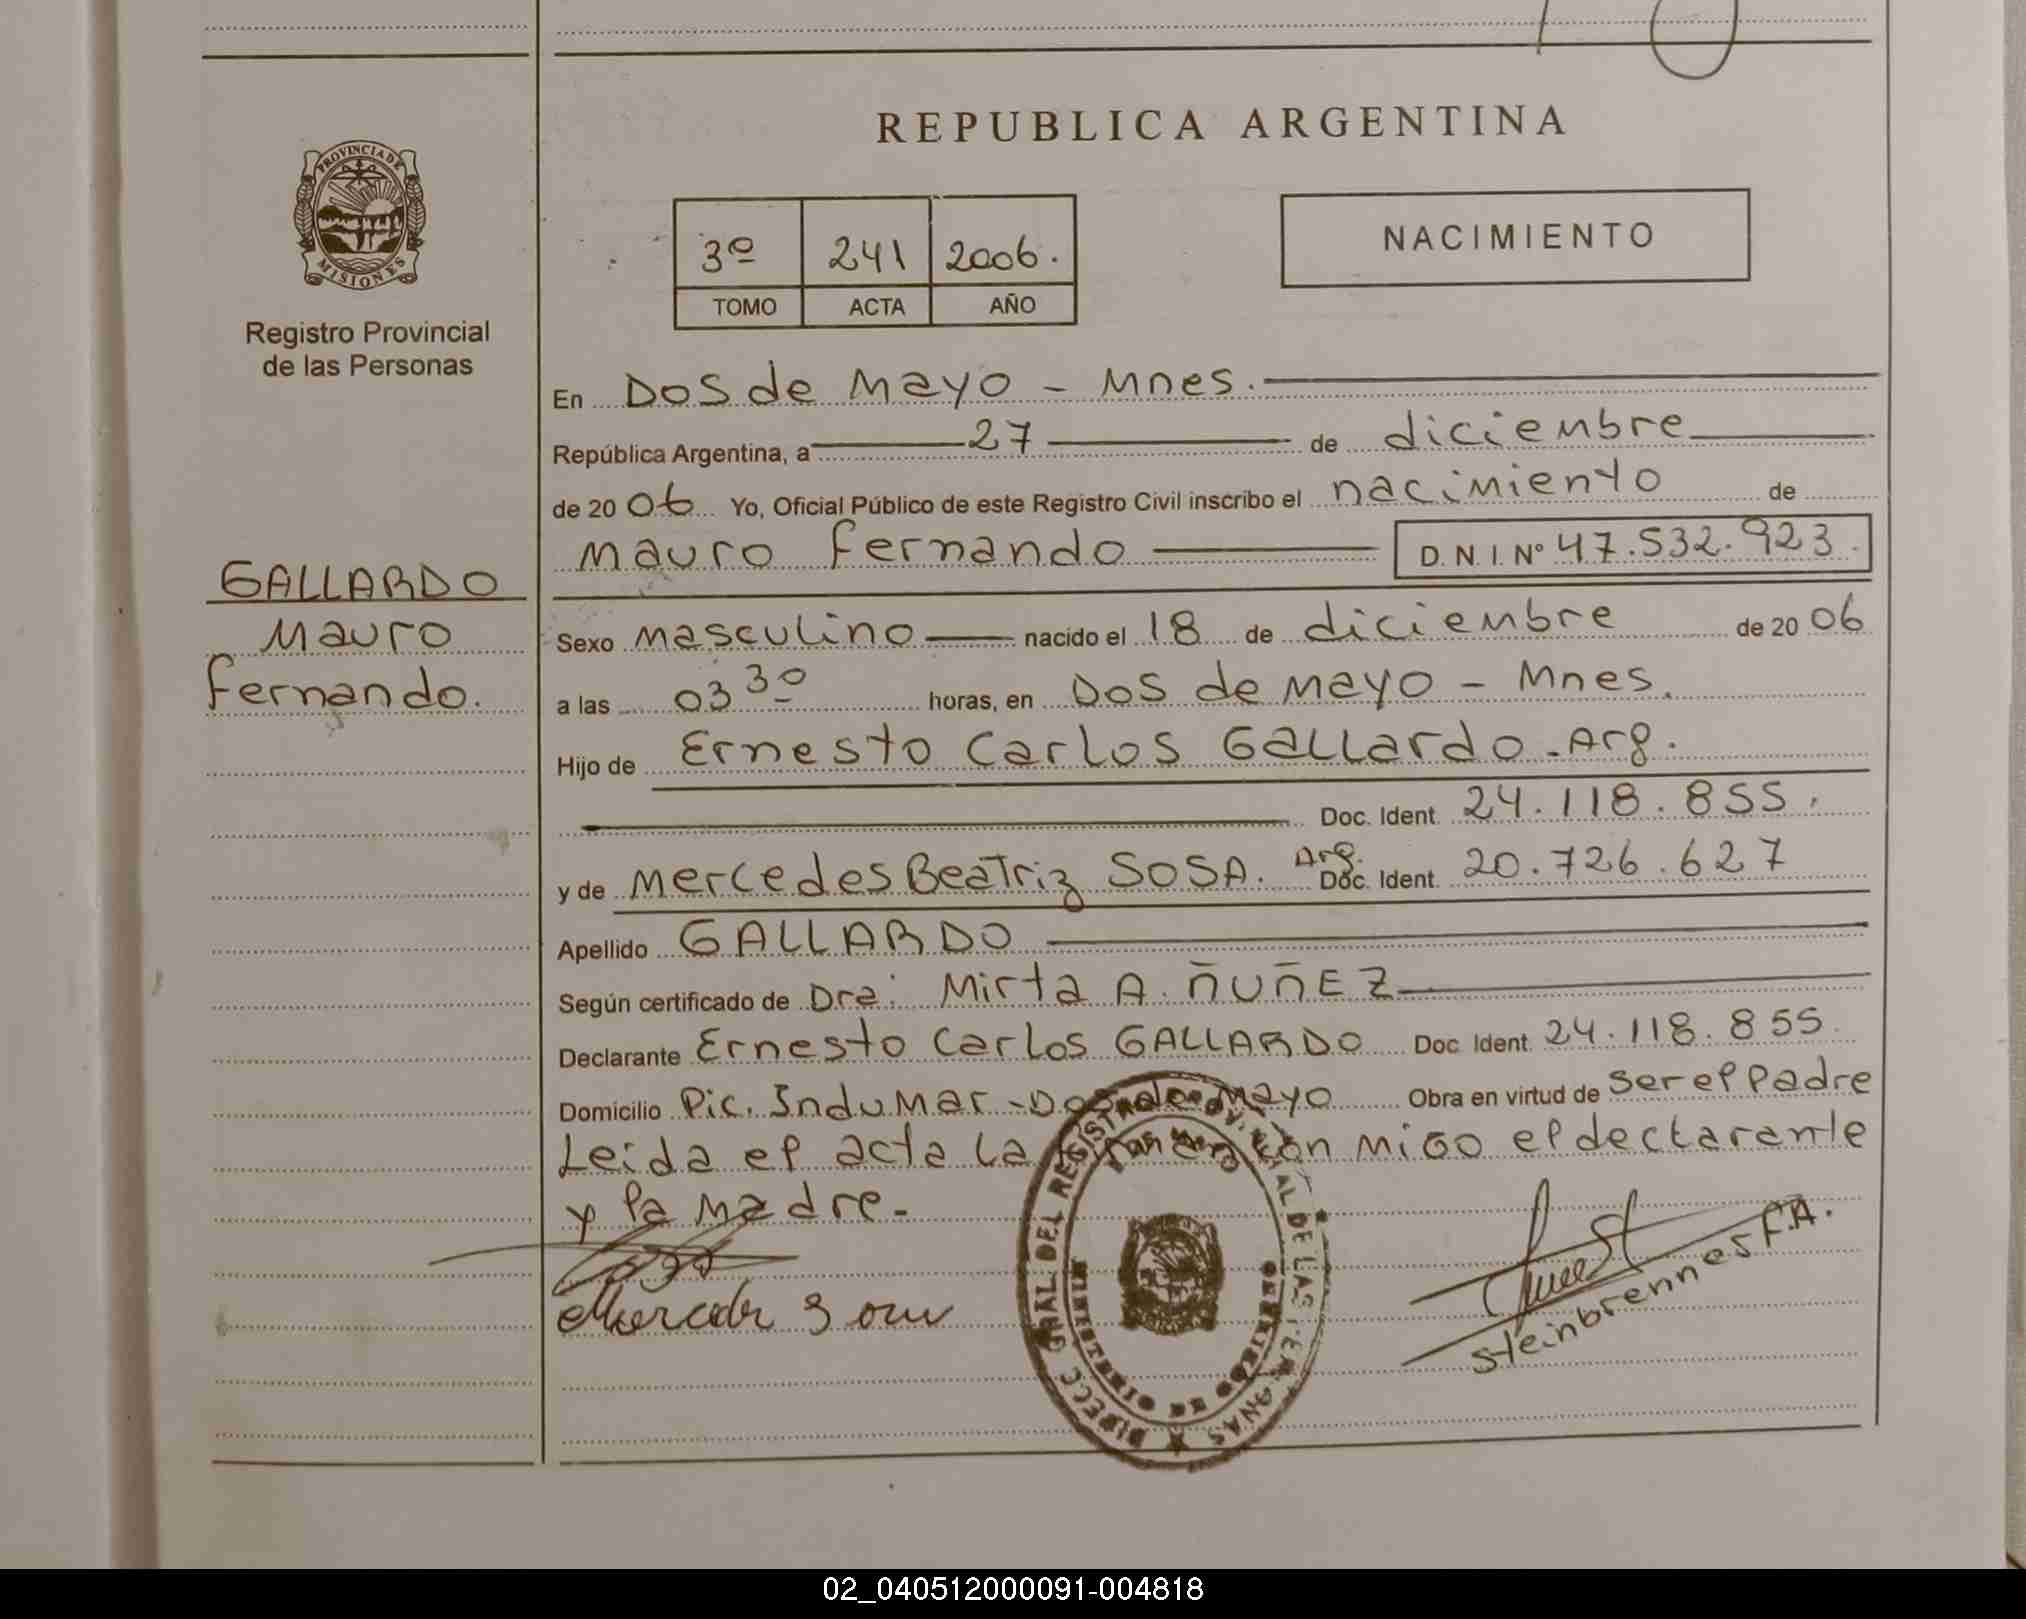 REPUBLICA ARGENTINA
PROVINCIA DE
MISIONES
Registro Provincial
de las Personas
3º 241 2006.
TOMO ACTA AÑO
NACIMIENTO
En Dos de Mayo - Mnes.
República Argentina, a 27 de diciembre
de 20 06 Yo, Oficial Público de este Registro Civil inscribo el nacimiento de
Mauro Fernando D.N.I. Nº 47.532.923.
GALLARDO
Mauro
Fernando.
Sexo masculino nacido el 18 de diciembre de 20 06
a las 03 30 horas, en Dos de Mayo - Mnes.
Hijo de Ernesto Carlos Gallardo - Arg.
Doc. Ident. 24.118.855.
y de Mercedes Beatriz SOSA. Arg. Doc. Ident. 20.726.627
Apellido GALLARDO
Según certificado de Dra: Mirta A. ÑUÑEZ
Declarante Ernesto Carlos GALLARDO Doc. Ident. 24.118.855.
Domicilio Pic. Indumar - Dos de Mayo Obra en virtud de ser el padre
Leida el acta la firman con migo el declarante
y la madre.
Steinbrenner F.A.
02_040512000091-004818